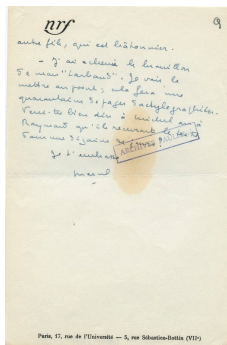 nrf
autre fils, qui est bâtonnier.
— J'ai achevé le brouillon
de mon "Larbaud". Je vais le
mettre au point; cela fera une
quarantaine de pages dactylographiées.
bien dire à Michel
qu'il recevra le
dans une dizaine de jours.
Je t'embrasse
Marcel
ARCHIVES PAULHAN
Paris, 17, rue de l'Université — 5, rue Sébastien-Bottin (VIIe)